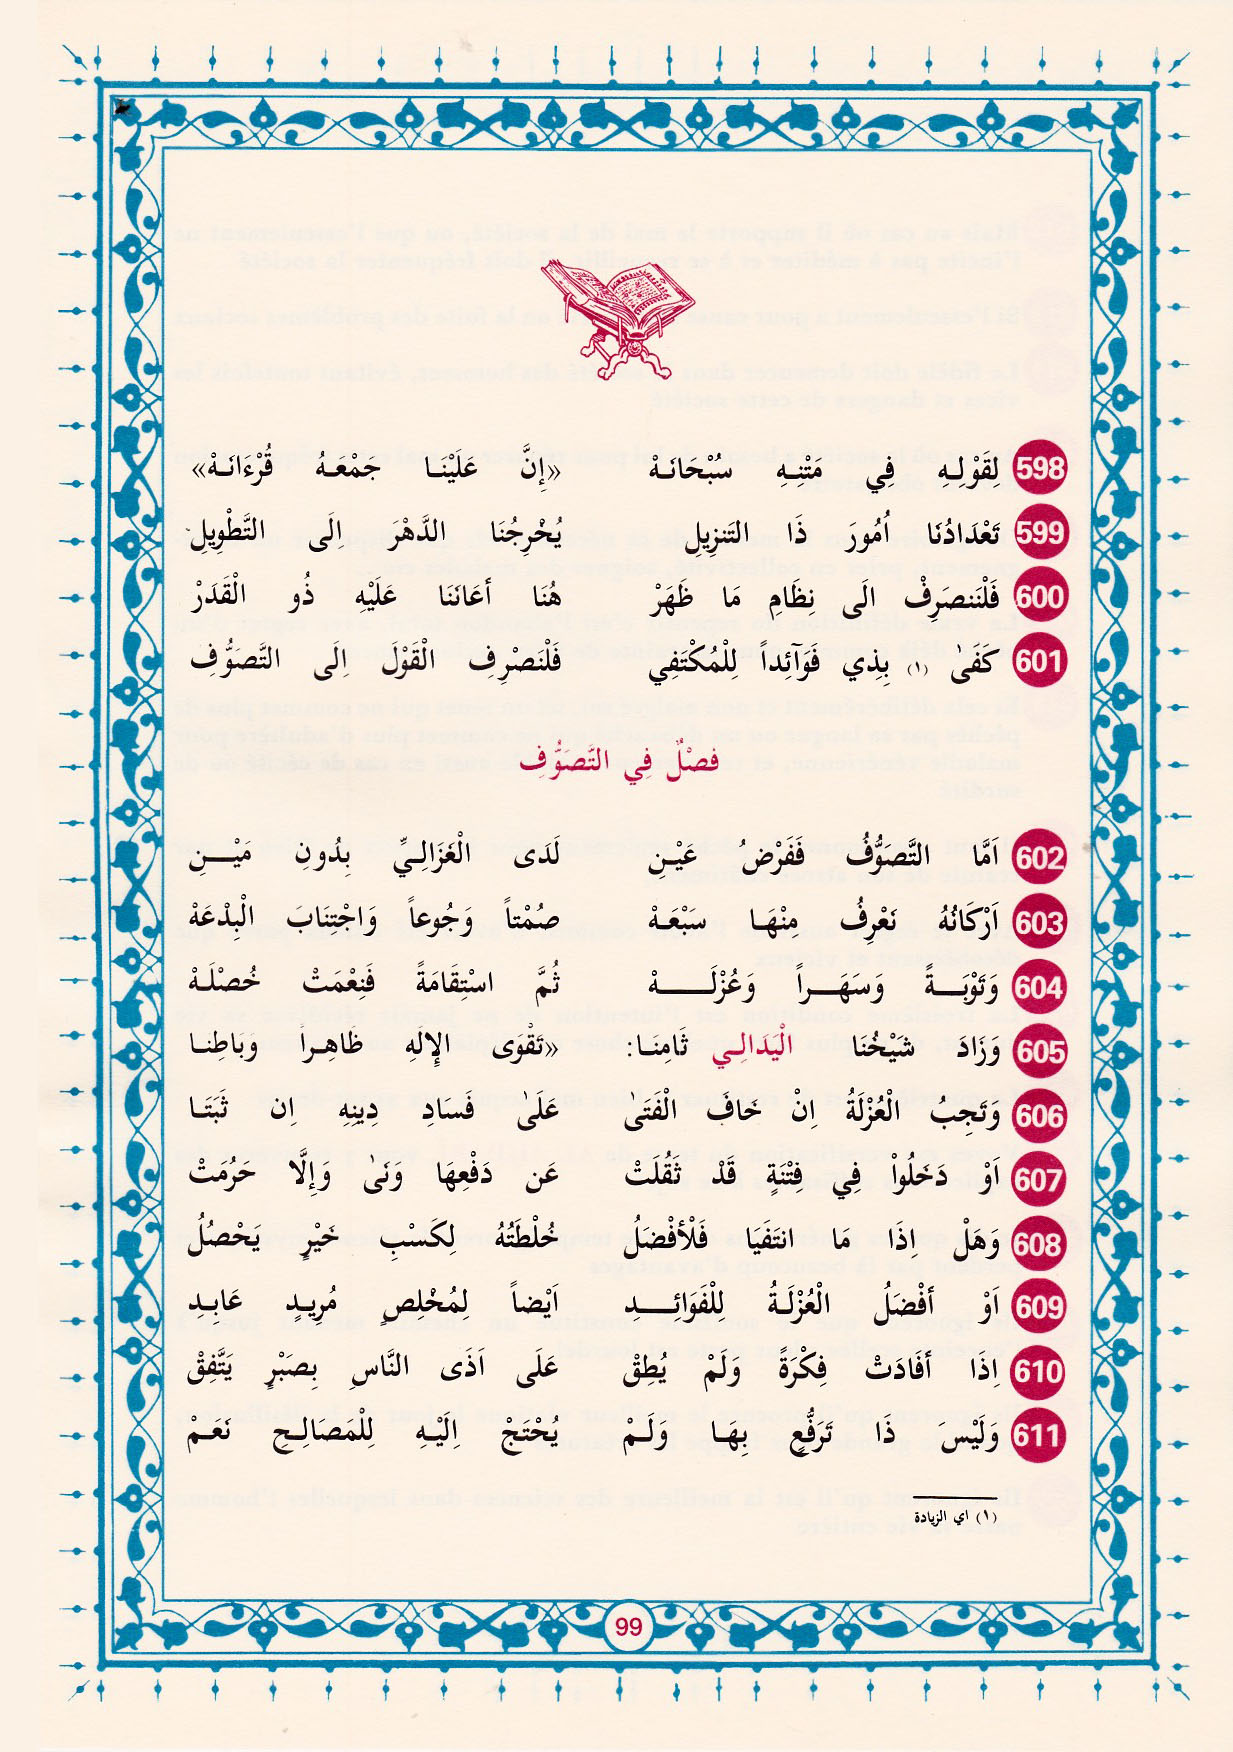 598 لِقَوْلِهِ فِي مَتْنِهِ سُبْحَانَهْ «إِنَّ عَلَيْنَا جَمْعَهُ قُرْءَانَهْ»
599 تَعْدَادُنَا أُمُورَ ذَا التَنزِيلِ يُخْرِجُنَا الدَّهْرَ اِلَى التَّطْوِيلِ
600 فَلْنَنصَرِفْ الَى نِظَامِ مَا ظَهَرْ هُنَا أعَانَنَا عَلَيْهِ ذُو الْقَدَرْ
601 كَفَىٰ (١) بِذِي فَوَآئِداً لِلْمُكْتَفِي فَلْنَصْرِفِ الْقَوْلَ اِلَى التَّصَوُّفِ
فَصْلٌ فِي التَّصَوُّفِ
602 اَمَّا التَّصَوُّفُ فَفَرْضُ عَيْنِ لَدَى الْغَزَالِيِّ بِدُونِ مَيْنِ
603 اَرْكَانُهُ نَعْرِفُ مِنْهَا سَبْعَهْ صُمْتاً وَجُوعاً وَاجْتِنَابَ الْبِدْعَهْ
604 وَتَوْبَةً وَسَهَراً وَعُزْلَهْ ثُمَّ اسْتِقَامَةً فَنِعْمَتْ خُصْلَهْ
605 وَزَادَ شَيْخُنَا الْيَدَالِي ثَامِنَا: «تَقْوَى الإِلَهِ ظَاهِراً وَبَاطِنَا
606 وَتَجِبُ الْعُزْلَةُ اِنْ خَافَ الْفَتَى عَلَىٰ فَسَادِ دِينِهِ اِن ثَبَتَا
607 اَوْ دَخَلُواْ فِي فِتْنَةٍ قَدْ ثَقُلَتْ عَن دَفْعِهَا وَنَىٰ وَإِلَّا حَرُمَتْ
608 وَهَلْ اِذَا مَا انتَفَيَا فَلْأفْضَلُ خُلْطَتُهُ لِكَسْبِ خَيْرٍ يَحْصُلُ
609 اَوْ أفْضَلُ الْعُزْلَةُ لِلْفَوَائِدِ اَيْضاً لِمُخْلِصٍ مُرِيدٍ عَابِدِ
610 اِذَا أَفَادَتْ فِكْرَةً وَلَمْ يُطِقْ عَلَى اَذَى النَّاسِ بِصَبْرٍ يَتَّفِقْ
611 وَلَيْسَ ذَا تَرَفُّعٍ بِهَا وَلَمْ يُحْتَجْ اِلَيْهِ لِلْمَصَالِحِ نَعَمْ
(١) اي الزيادة
99